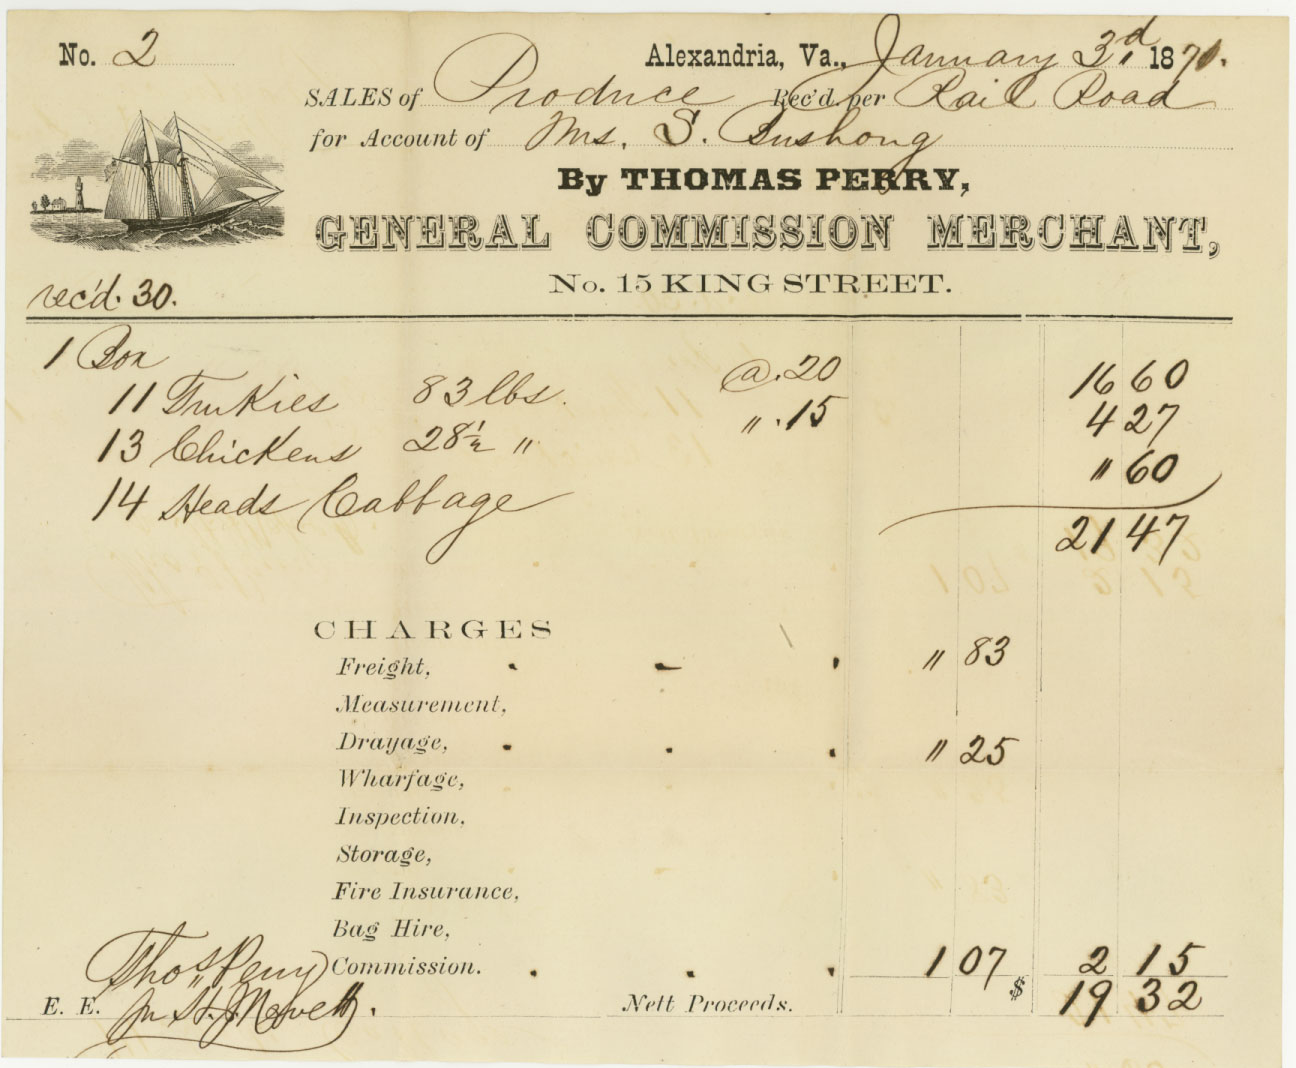 No. 2 Alexandria, Va., January 3d, 1870.
SALES of Produce Rec'd. per Rail Road
for Account of Mrs. S. Bushong
By THOMAS PERRY,
GENERAL COMMISSION MERCHANT,
No. 15 KING STREET.
rec'd. 30.
1 Box
11 Turkies 83 lbs. @ .20 16 60
13 Chickens 28½ " " .15 4 27
14 Heads Cabbage " 60
21 47
CHARGES
Freight, " 83
Measurement,
Drayage, " 25
Wharfage,
Inspection,
Storage,
Fire Insurance,
Bag Hire,
Thos Perry Commission. 1 07 2 15
E. E. Nett Proceeds. $ 19 32